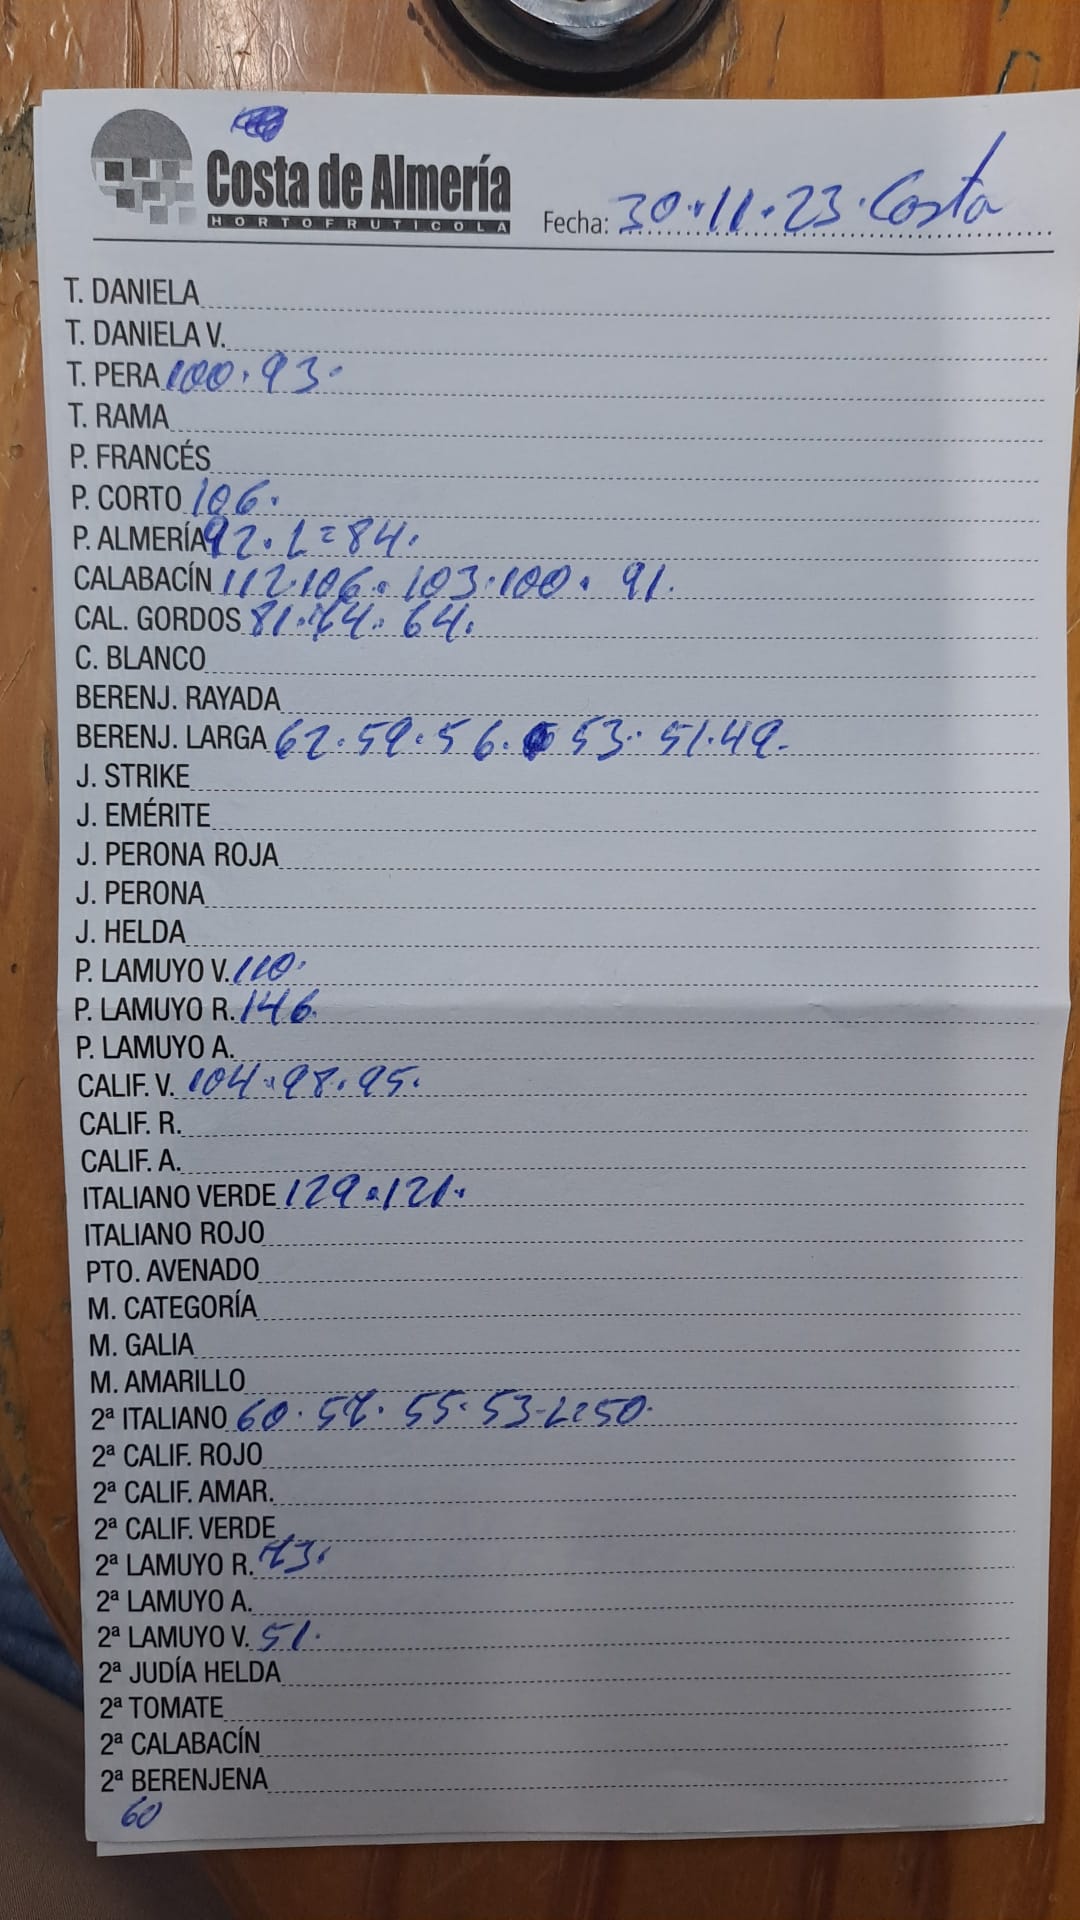 Costa de Almería
HORTOFRUTICOLA
Fecha: 30.11.23. Costa
T. DANIELA
T. DANIELA V.
T. PERA 100.93.
T. RAMA
P. FRANCÉS
P. CORTO 106.
P. ALMERÍA 92.L=84.
CALABACÍN 112.106.103.100.91.
CAL. GORDOS 81.74.64.
C. BLANCO
BERENJ. RAYADA
BERENJ. LARGA 62.59.56.53.51.49.
J. STRIKE
J. EMÉRITE
J. PERONA ROJA
J. PERONA
J. HELDA
P. LAMUYO V. 110.
P. LAMUYO R. 146.
P. LAMUYO A.
CALIF. V. 104.98.95.
CALIF. R.
CALIF. A.
ITALIANO VERDE 129.121.
ITALIANO ROJO
PTO. AVENADO
M. CATEGORÍA
M. GALIA
M. AMARILLO
2ª ITALIANO 60.57.55.53-L=50.
2ª CALIF. ROJO
2ª CALIF. AMAR.
2ª CALIF. VERDE
2ª LAMUYO R. 73.
2ª LAMUYO A.
2ª LAMUYO V. 51.
2ª JUDÍA HELDA
2ª TOMATE
2ª CALABACÍN
2ª BERENJENA
60